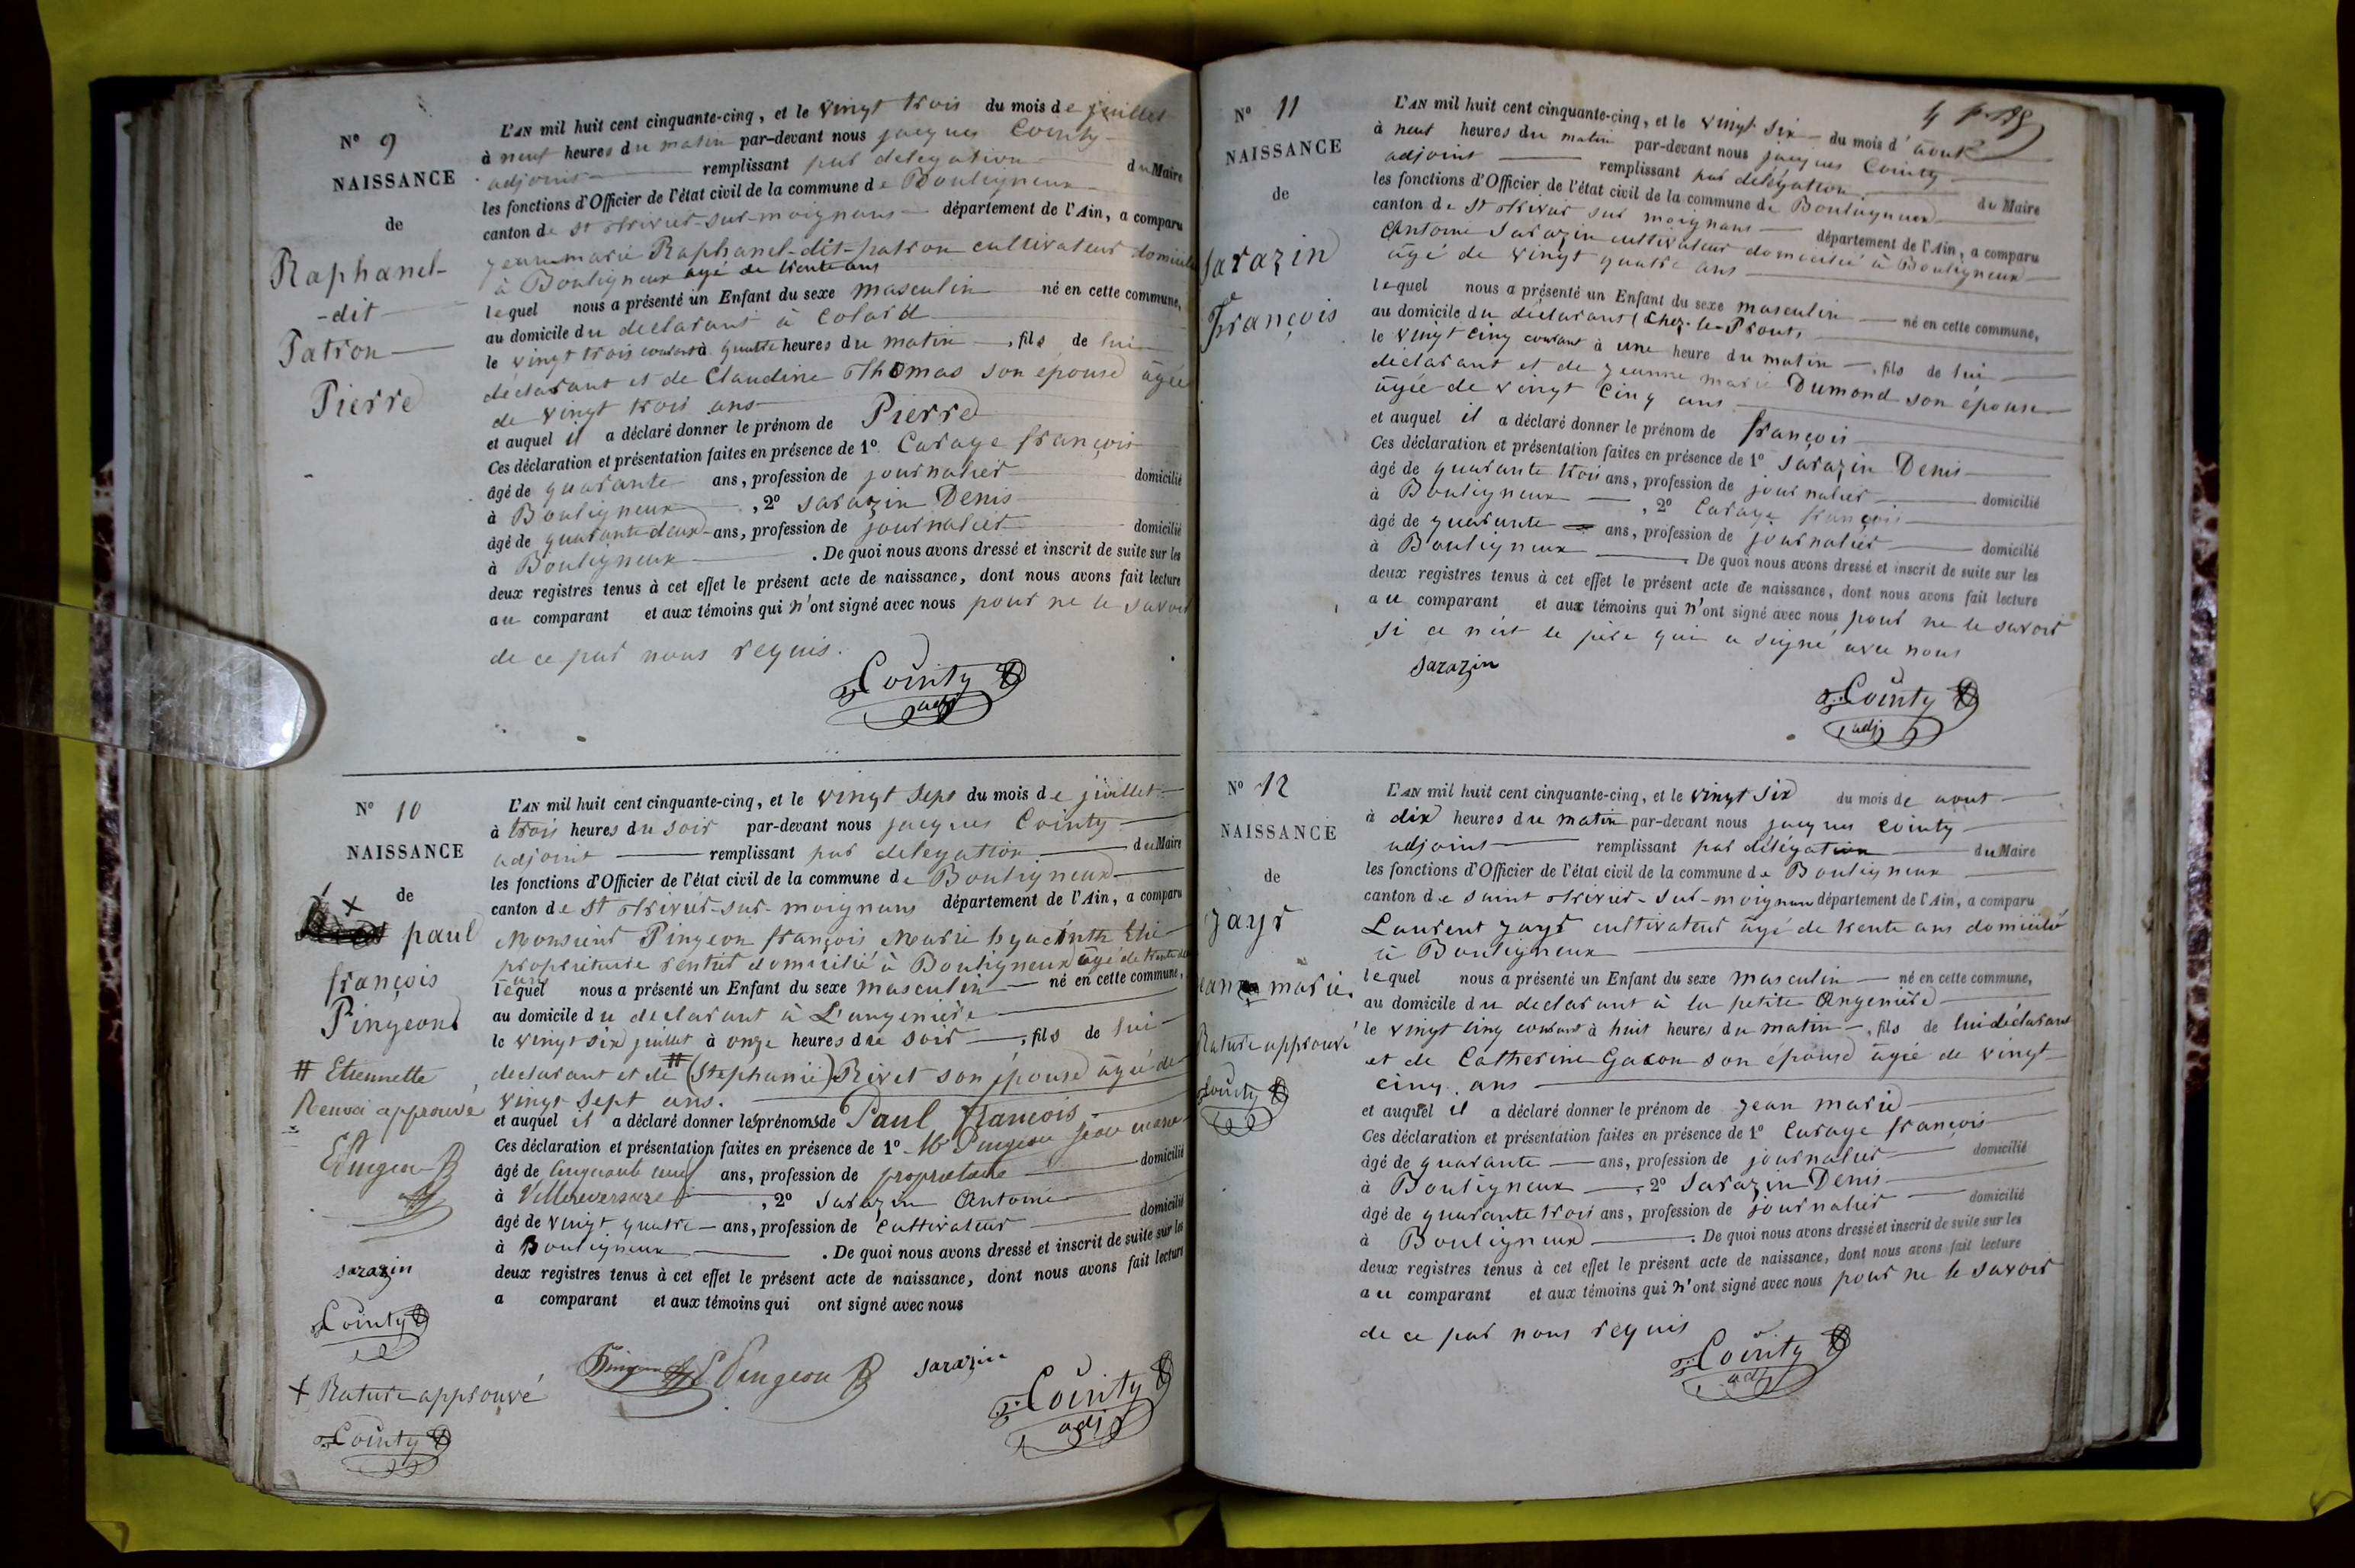 N° 9
NAISSANCE
de
Raphanel-
-dit
Patron
Pierre
L'AN mil huit cent cinquante-cinq, et le vingt trois du mois de juillet
à neuf heures du matin par-devant nous jacques Cointy
adjoint remplissant par délégation du Maire
les fonctions d'Officier de l'état civil de la commune de Bouligneux
canton de St trivier-sur-moignans département de l'Ain, a comparu
jean marie Raphanel-dit-patron cultivateur domicilié
à Bouligneux agé de trente ans
lequel nous a présenté un Enfant du sexe masculin né en cette commune,
au domicile du déclarant à Colard
le vingt trois courant à quatre heures du matin, fils de lui
déclarant et de Claudine Thomas son épouse âgée
de vingt trois ans
et auquel il a déclaré donner le prénom de Pierre
Ces déclaration et présentation faites en présence de 1° Carage françois
âgé de quarante ans, profession de journalier domicilié
à Bouligneux, 2° Sarazin Denis
âgé de quarante deux ans, profession de journalier domicilié
à Bouligneux. De quoi nous avons dressé et inscrit de suite sur les
deux registres tenus à cet effet le présent acte de naissance, dont nous avons fait lecture
au comparant et aux témoins qui n'ont signé avec nous pour ne le savoir
de ce par nous requis.
Cointy
adj
N° 10
NAISSANCE
de
+
paul
françois
Pingeon
# Etiennette
Renvoi approuvé
EPingeon
Sarazin
Cointy
+ Rature approuvé
Cointy
L'AN mil huit cent cinquante-cinq, et le vingt sept du mois de juillet
à trois heures du soir par-devant nous jacques Cointy
adjoint remplissant par délégation du Maire
les fonctions d'Officier de l'état civil de la commune de Bouligneux
canton de St trivier-sur-moignans département de l'Ain, a comparu
Monsieur Pingeon françois Marie hyacinth
propriétaire rentier domicilié à Bouligneux âgé de trente
ans
lequel nous a présenté un Enfant du sexe masculin né en cette commune,
au domicile du déclarant à L'angenière
le vingt six juillet à onze heures du soir, fils de lui
déclarant et de # (Stephanie) Rivet son épouse âgée de
vingt sept ans.
et auquel il a déclaré donner les prénoms de Paul françois
Ces déclaration et présentation faites en présence de 1° Mr Pingeon jean marie
âgé de cinquante neuf ans, profession de propriétaire domicilié
à Villereversure, 2° Sarazin Antoine
âgé de vingt quatre ans, profession de cultivateur domicilié
à Bouligneux. De quoi nous avons dressé et inscrit de suite sur les
deux registres tenus à cet effet le présent acte de naissance, dont nous avons fait lecture
a comparant et aux témoins qui ont signé avec nous
Pingeon EPingeon Sarazin
Cointy
adj
N° 11
NAISSANCE
de
Sarazin
François
4
L'AN mil huit cent cinquante-cinq, et le vingt six du mois d'août
à neuf heures du matin par-devant nous jacques Cointy
adjoint remplissant par délégation du Maire
les fonctions d'Officier de l'état civil de la commune de Bouligneux
canton de St trivier sur moignans département de l'Ain, a comparu
Antoine Sarazin cultivateur domicilié à Bouligneux
âgé de vingt quatre ans
lequel nous a présenté un Enfant du sexe masculin né en cette commune,
au domicile du déclarant Chez-le-Prout,
le vingt cinq courant à une heure du matin, fils de lui
déclarant et de jeanne marie Dumond son épouse
âgée de vingt cinq ans
et auquel il a déclaré donner le prénom de françois
Ces déclaration et présentation faites en présence de 1° Sarazin Denis
âgé de quarante trois ans, profession de journalier domicilié
à Bouligneux, 2° Carage françois
âgé de quarante ans, profession de journalier domicilié
à Bouligneux. De quoi nous avons dressé et inscrit de suite sur les
deux registres tenus à cet effet le présent acte de naissance, dont nous avons fait lecture
au comparant et aux témoins qui n'ont signé avec nous pour ne le savoir
si ce n'est le père qui a signé avec nous
Sarazin
Cointy
adj
N° 12
NAISSANCE
de
Jayr
jean marie.
Rature approuvé
Cointy
L'AN mil huit cent cinquante-cinq, et le vingt six du mois de aout
à dix heures du matin par-devant nous jacques Cointy
adjoint remplissant par délégation du Maire
les fonctions d'Officier de l'état civil de la commune de Bouligneux
canton de saint trivier-sur-moignans département de l'Ain, a comparu
Laurent Jayr cultivateur âgé de trente ans domicilié
à Bouligneux
lequel nous a présenté un Enfant du sexe masculin né en cette commune,
au domicile du déclarant à la petite Angenière
le vingt cinq courant à huit heures du matin, fils de lui déclarant
et de Catherine Gacon son épouse âgée de vingt
cinq ans
et auquel il a déclaré donner le prénom de jean marie
Ces déclaration et présentation faites en présence de 1° Carage françois
âgé de quarante ans, profession de journalier domicilié
à Bouligneux, 2° Sarazin Denis
âgé de quarante trois ans, profession de journalier domicilié
à Bouligneux. De quoi nous avons dressé et inscrit de suite sur les
deux registres tenus à cet effet le présent acte de naissance, dont nous avons fait lecture
au comparant et aux témoins qui n'ont signé avec nous pour ne le savoir
de ce par nous requis
Cointy
adj